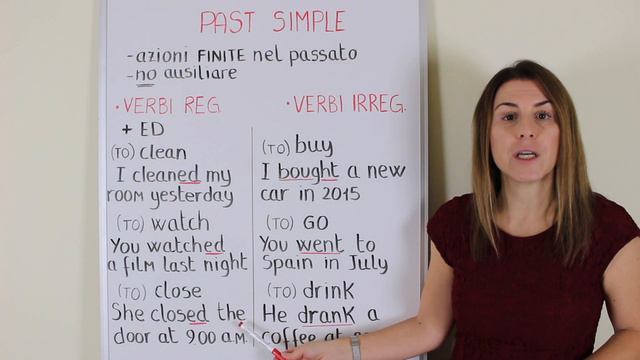 PAST SIMPLE
-azioni FINITE nel passato
-no ausiliare
• VERBI REG.
+ ED
(TO) clean
I cleaned my
room yesterday
(TO) watch
You watched
a film last night
(TO) close
She closed the
door at 9.00 a.m.
• VERBI IRREG.
(TO) buy
I bought a new
car in 2015
(TO) GO
You went to
Spain in July
(TO) drink
He drank a
coffee at